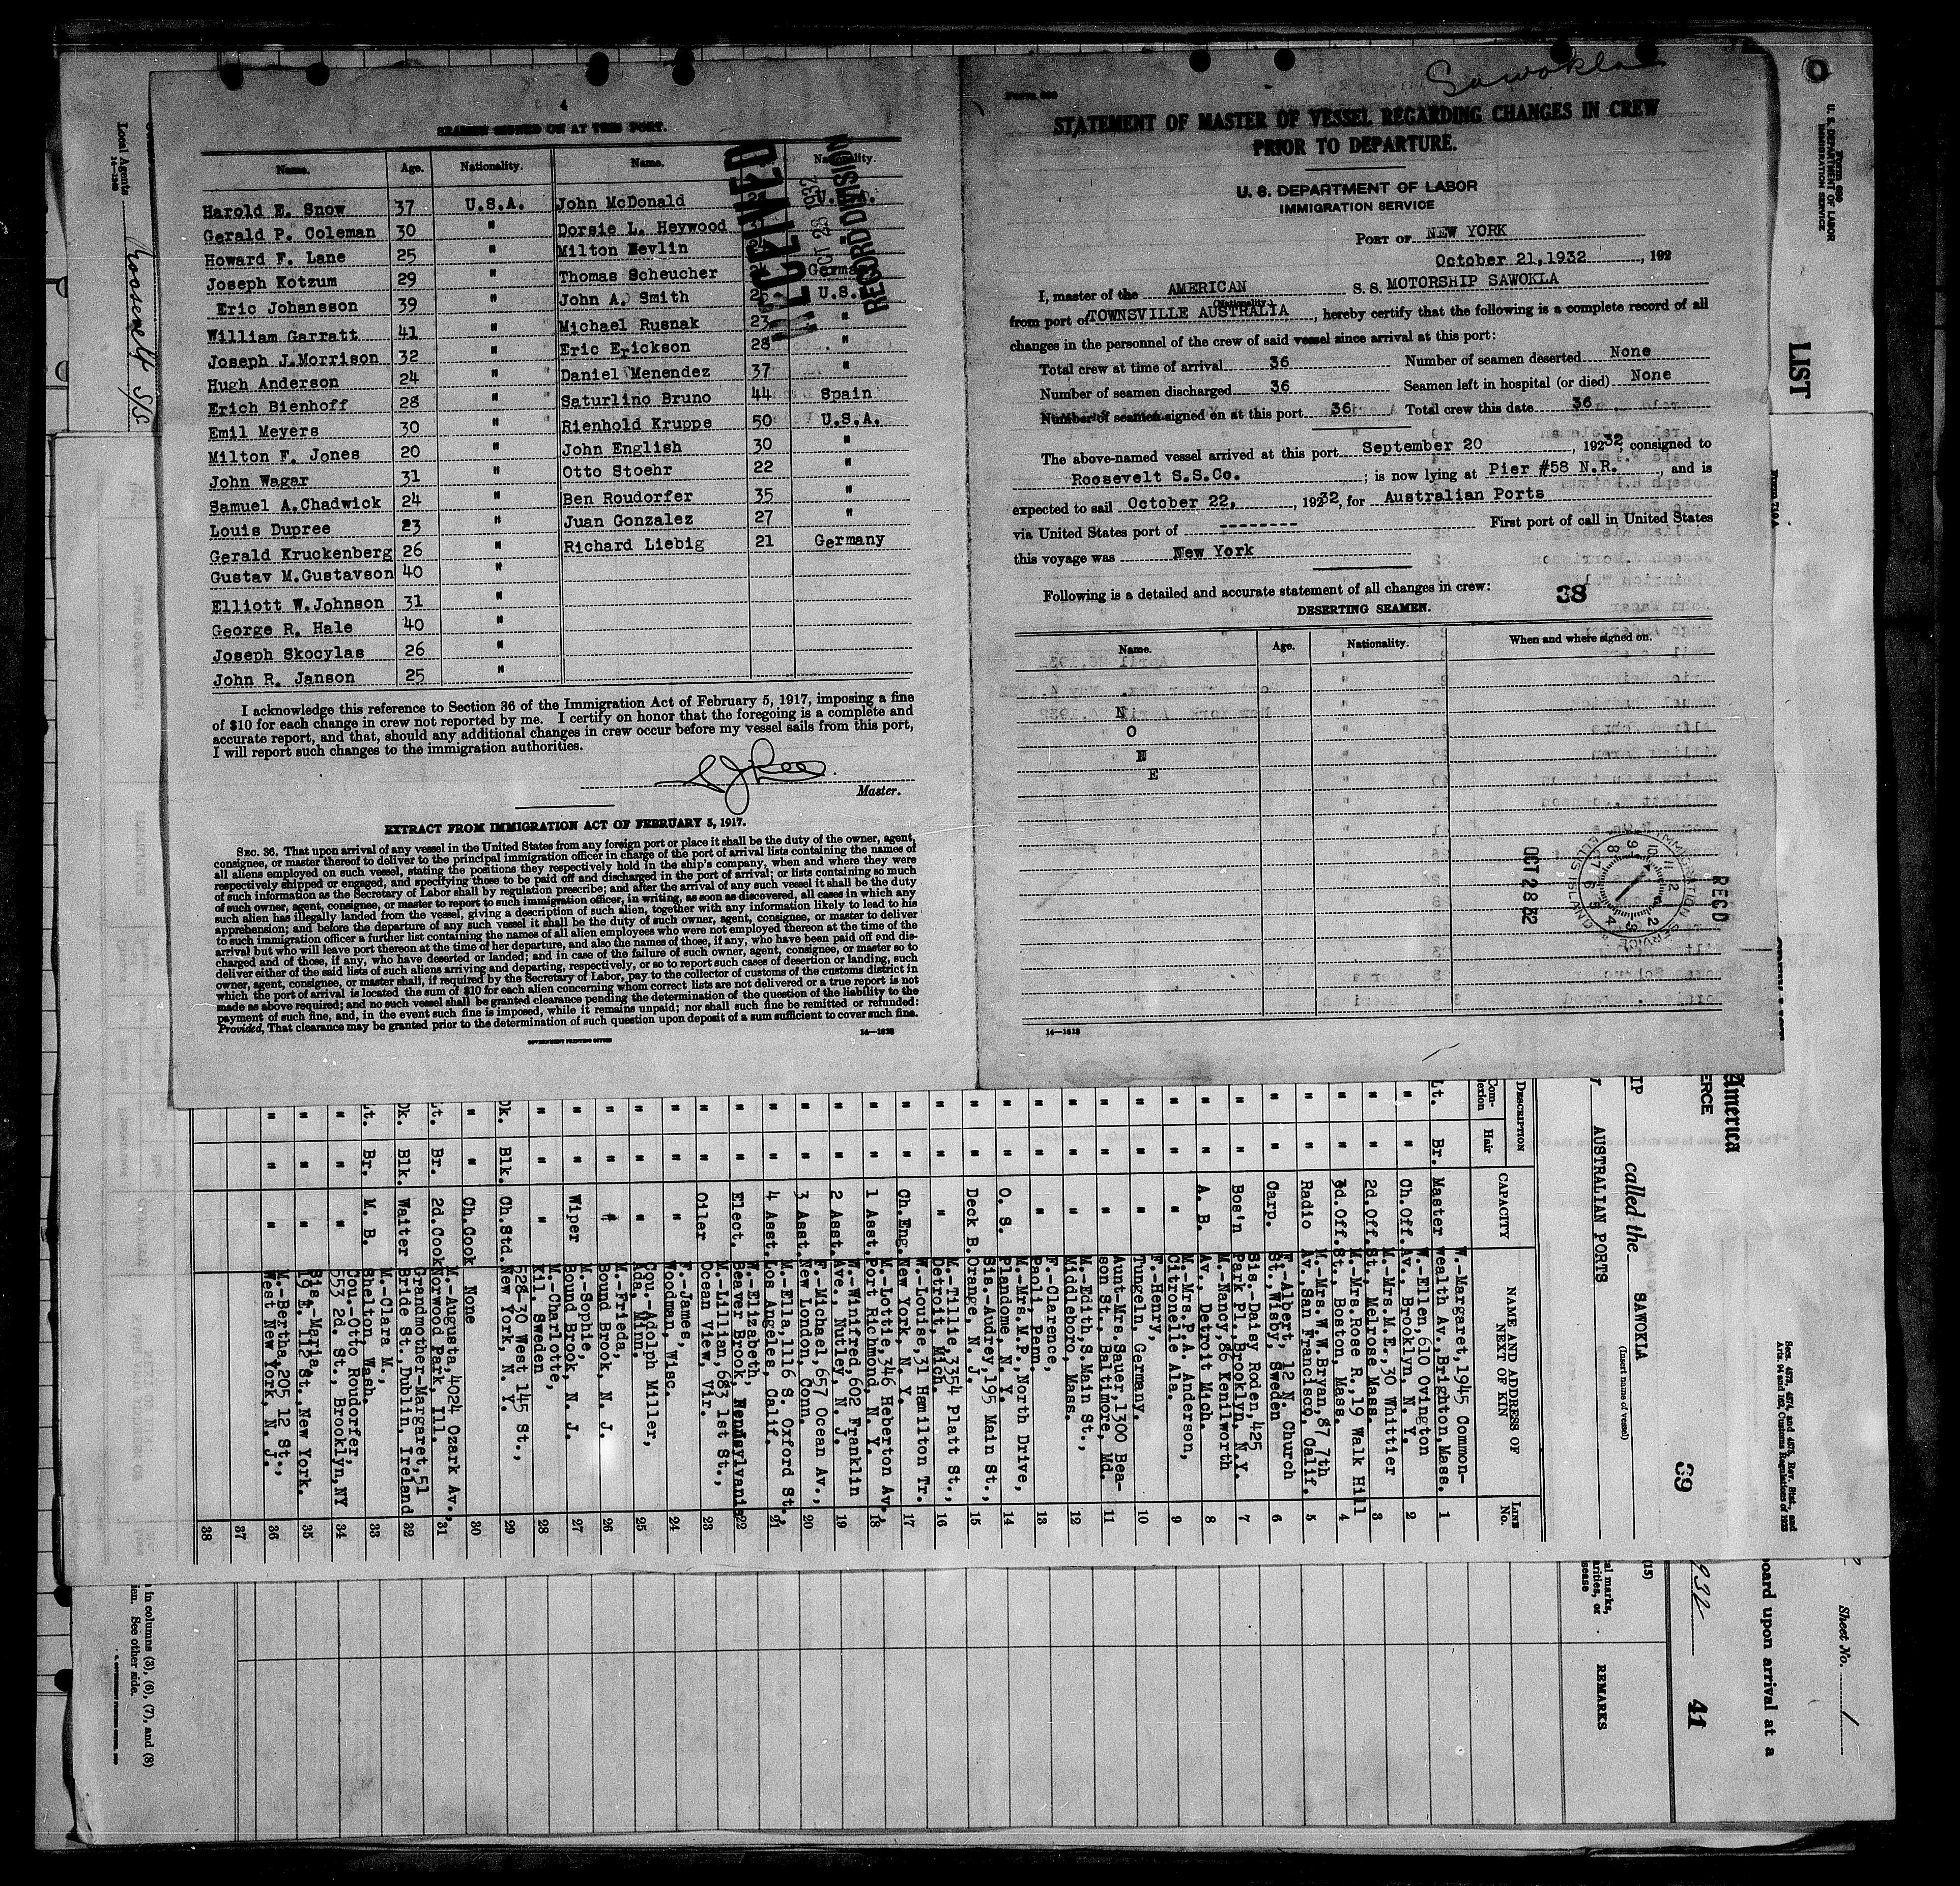 4
SEAMEN SIGNED ON AT THIS PORT.
Name. Age. Nationality. Name. Nationality.
Harold E. Snow 37 U.S.A. John McDonald
Gerald P. Coleman 30 " Dorsie L. Heywood
Howard F. Lane 25 " Milton Nevlin
Joseph Kotzum 29 " Thomas Scheucher
Eric Johansson 39 " John A. Smith U.S.
William Garratt 41 " Michael Rusnak 23 "
Joseph J.Morrison 32 " Eric Erickson 28 "
Hugh Anderson 24 " Daniel Menendez 37 "
Erich Bienhoff 28 " Saturlino Bruno 44 Spain
Emil Meyers 30 " Rienhold Kruppe 50 U.S.A.
Milton F. Jones 20 " John English 30 "
John Wagar 31 " Otto Stoehr 22 "
Samuel A.Chadwick 24 " Ben Roudorfer 35 "
Louis Dupree 23 " Juan Gonzalez 27 "
Gerald Kruckenberg 26 " Richard Liebig 21 Germany
Gustav M.Gustavson 40 "
Elliott W.Johnson 31 "
George R. Hale 40 "
Joseph Skocylas 26 "
John R. Janson 25 "
RECEIVED
OCT 28 1932
RECORD DIVISION
I acknowledge this reference to Section 36 of the Immigration Act of February 5, 1917, imposing a fine
of $10 for each change in crew not reported by me. I certify on honor that the foregoing is a complete and
accurate report, and that, should any additional changes in crew occur before my vessel sails from this port,
I will report such changes to the immigration authorities.
Master.
EXTRACT FROM IMMIGRATION ACT OF FEBRUARY 5, 1917.
SEC. 36. That upon arrival of any vessel in the United States from any foreign port or place it shall be the duty of the owner, agent,
consignee, or master thereof to deliver to the principal immigration officer in charge of the port of arrival lists containing the names of
all aliens employed on such vessel, stating the positions they respectively hold in the ship's company, when and where they were
respectively shipped or engaged, and specifying those to be paid off and discharged in the port of arrival; or lists containing so much
of such information as the Secretary of Labor shall by regulation prescribe; and after the arrival of any such vessel it shall be the duty
of such owner, agent, consignee, or master to report to such immigration officer, in writing, as soon as discovered, all cases in which any
such alien has illegally landed from the vessel, giving a description of such alien, together with any information likely to lead to his
apprehension; and before the departure of any such vessel it shall be the duty of such owner, agent, consignee, or master to deliver
to such immigration officer a further list containing the names of all alien employees who were not employed thereon at the time of the
arrival but who will leave port thereon at the time of her departure, and also the names of those, if any, who have been paid off and dis-
charged and of those, if any, who have deserted or landed; and in case of the failure of such owner, agent, consignee, or master so to
deliver either of the said lists of such aliens arriving and departing, respectively, or so to report such cases of desertion or landing, such
owner, agent, consignee, or master shall, if required by the Secretary of Labor, pay to the collector of customs of the customs district in
which the port of arrival is located the sum of $10 for each alien concerning whom correct lists are not delivered or a true report is not
made as above required; and no such vessel shall be granted clearance pending the determination of the question of the liability to the
payment of such fine, and, in the event such fine is imposed, while it remains unpaid; nor shall such fine be remitted or refunded:
Provided, That clearance may be granted prior to the determination of such question upon deposit of a sum sufficient to cover such fine.
GOVERNMENT PRINTING OFFICE 14—1618
Sawokla
Form 689
STATEMENT OF MASTER OF VESSEL REGARDING CHANGES IN CREW
PRIOR TO DEPARTURE.
U. S. DEPARTMENT OF LABOR
IMMIGRATION SERVICE
PORT OF NEW YORK
October 21,1932, 192
I, master of the AMERICAN S. S. MOTORSHIP SAWOKLA
(Nationality.)
from port of TOWNSVILLE AUSTRALIA, hereby certify that the following is a complete record of all
changes in the personnel of the crew of said vessel since arrival at this port:
Total crew at time of arrival 36 Number of seamen deserted None
Number of seamen discharged 36 Seamen left in hospital (or died) None
Number of seamen signed on at this port 36 Total crew this date 36
The above-named vessel arrived at this port September 20, 19232, consigned to
Roosevelt S.S.Co. ; is now lying at Pier #58 N.R. , and is
expected to sail October 22, , 19232, for Australian Ports
via United States port of -------- First port of call in United States
this voyage was New York
Following is a detailed and accurate statement of all changes in crew: 38
DESERTING SEAMEN.
Name. Age. Nationality. When and where signed on.
N
O
N
E
REC'D
IMMIGRATION SERVICE ELLIS ISLAND
OCT 28 32
14—1618
Local Agents Roosevelt S/S
14—1240
Form 689
U. S. DEPARTMENT OF LABOR
IMMIGRATION SERVICE
LIST
Form 710 A
America
ERCE
IP called the SAWOKLA
(Insert name of vessel)
AUSTRALIAN PORTS
69
DESCRIPTION CAPACITY NAME AND ADDRESS OF NEXT OF KIN LINE No.
Com-plexion Hair
Lt. Br. Master W.-Margaret,1945 Common-wealth Av.,Brighton,Mass. 1
" " Ch.Off. W.-Ellen,610 Ovington Av., Brooklyn, N. Y. 2
" " 2d.Off. M.-Mrs.M.E.,30 Whittier St., Melrose Mass. 3
" " 3d.Off. M.-Mrs.Rose R.,19 Walk Hill St., Boston, Mass. 4
" " Radio M.-Mrs.W.W.Bryan,87 7th Av.,San Francisco, Calif. 5
" " Carp. F.-Albert, 12 N. Church St.,Wisby, Sweden 6
" " Bos'n Sis.-Daisy Roden,425 Park Pl.,Brooklyn, N.Y. 7
" " A. B. M.-Nancy,86 Kenilworth Av., Detroit Mich. 8
" " " M.-Mrs.P.A.Anderson, Citronelle Ala. 9
" " " F.-Henry, Tungeln, Germany. 10
" " " Aunt-Mrs.Sauer,1300 Bea-son St., Baltimore, Md. 11
" " " M.-Edith,S.Main St., Middleboro, Mass. 12
" " " F.-Clarence, Paoli, Penn. 13
" " O. S. M.-Mrs.M.P.,North Drive, Plandome, N. Y. 14
" " Deck B. Sis.-Audrey,195 Main St., Orange, N. J. 15
" " " M.-Tillie,3354 Platt St., Detroit, Mich. 16
" " Ch.Eng. W.-Louise,31 Hamilton Tr. New York, N. Y. 17
" " 1 Asst. M.-Lottie,346 Heberton Av. Port Richmond, N. Y. 18
" " 2 Asst. W.-Winifred,602 Franklin Ave., Nutley, N. J. 19
" " 3 Asst. F.-Michael,657 Ocean Av., New London, Conn. 20
" " 4 Asst. M.-Ella,1116 S. Oxford St., Los Angeles, Calif. 21
" " Elect. W.-Elizabeth, Beaver Brook, Pennsylvania 22
" " Oiler M.-Lillian,683 1st St., Ocean View, Vir. 23
" " " F.-James, Woodman, Wisc. 24
" " " Cou.-Adolph Miller, Ada, Minn. 25
" " " M.-Frieda, Bound Brook, N. J. 26
" " Wiper M.-Sophie, Bound Brook, N. J. 27
" " " M.-Charlotte, Kil, Sweden 28
Dk. Blk. Ch.Std. 528-30 West 145 St., New York, N. Y. 29
" " Ch.Cook None 30
Lt. Br. 2d.Cook M.-Augusta,4024 Ozark Av., Norwood Park, Ill. 31
Dk. Blk. Waiter Grandmother-Margaret,51 Bride St.,Dublin, Ireland 32
Lt. Br. M. B. M.-Clara M., Shelton, Wash. 33
" " " Cou.-Otto Roudorfer, 553 2d. St., Brooklyn,NY 34
" " " Sis.-Maria, 19 E. 112 St.,New York. 35
" " " M.-Bertha,205 12 St., West New York, N. J. 36
37
38
Sheet No. 1
oard upon arrival at a
932
41
(15)
REMARKS
in columns (3), (6), (7), and (8)
See other side.